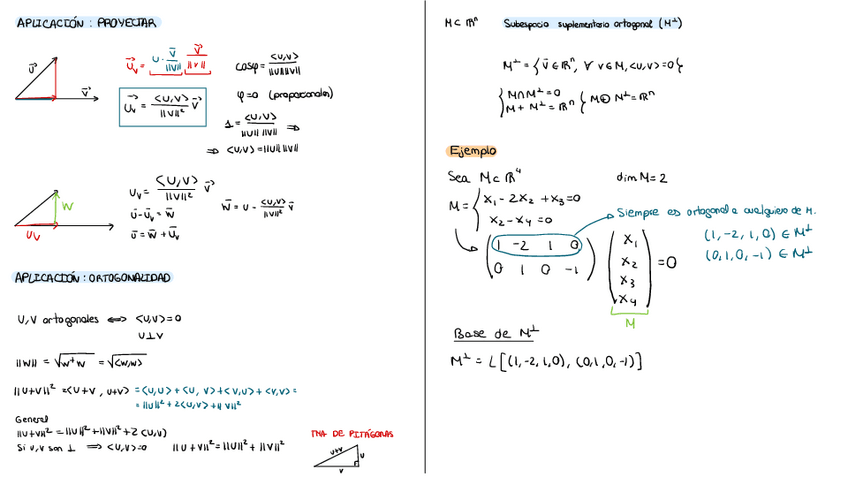 APLICACIÓN : PROYECTAR
u⃗
v⃗
u⃗ᵥ = u · v̄/||v|| v⃗/||v||
u⃗ᵥ = <u,v>/||v||² v⃗
cosφ = <u,v>/||u||||v||
φ=0 (proporcionales)
1 = <u,v>/||u|| ||v|| ⇒
⇒ <u,v> = ||u|| ||v||
w
uᵥ
uᵥ = <u,v>/||v||² v⃗
ū - ūᵥ = w̄
ū = w̄ + ūᵥ
w̄ = u - <u,v>/||v||² v̄
APLICACIÓN : ORTOGONALIDAD
u,v ortogonales ⟺ <u,v> = 0
u⊥v
||w|| = √w⁺w = √<w,w>
||u+v||² = <u+v, u+v> = <u,u> + <u,v> + <v,u> + <v,v> =
= ||u||² + 2<u,v> + ||v||²
General
||u+v||² = ||u||² + ||v||² + 2<u,v>
Si u,v son ⊥ ⟹ <u,v>=0 ||u+v||² = ||u||² + ||v||²
TMA DE PITÁGORAS
u+v
u
v
M ⊂ ℝⁿ Subespacio suplementario ortogonal (M⊥)
M⊥ = { v̄ ∈ ℝⁿ, ∀ v ∈ M, <u,v> = 0 }
{ M∩M⊥ = 0
M + M⊥ = ℝⁿ } M⊕M⊥ = ℝⁿ
Ejemplo
Sea M ⊂ ℝ⁴ dim M = 2
M = { x₁ - 2x₂ + x₃ = 0
x₂ - x₄ = 0
Siempre es ortogonal a cualquiera de M.
(1, -2, 1, 0) ∈ M⊥
(0, 1, 0, -1) ∈ M⊥
( 1 -2 1 0
0 1 0 -1 )
( x₁
x₂
x₃
x₄ ) = 0
M
Base de M⊥
M⊥ = L[(1,-2,1,0), (0,1,0,-1)]